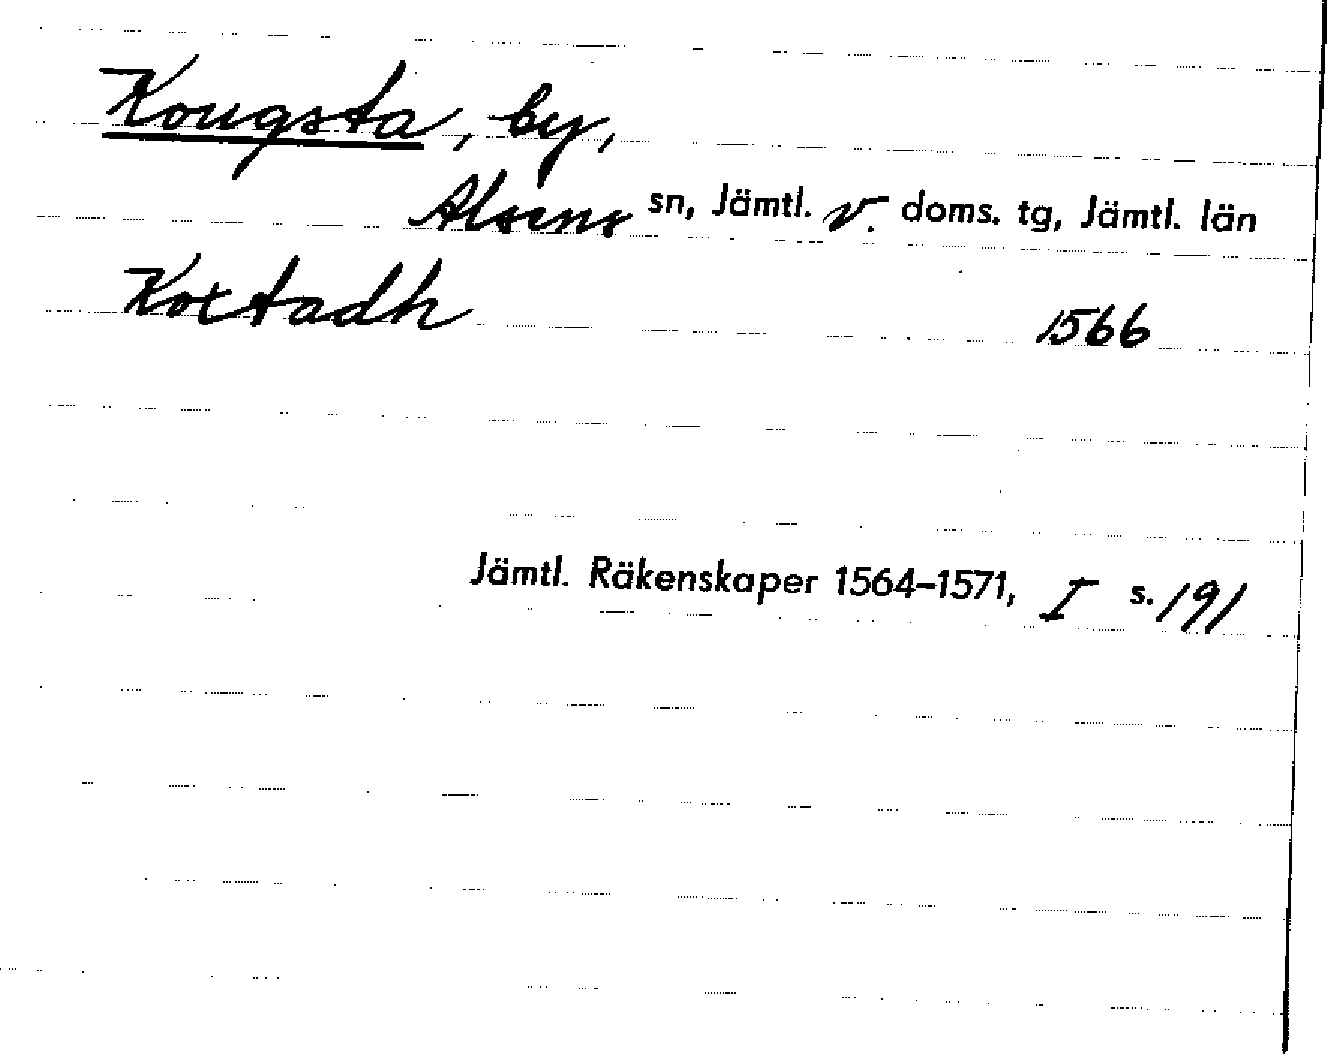 Kougsta, by,
Alsens sn, Jämtl. v. doms. tg, Jämtl. län
Koxtadh 1566
Jämtl. Räkenskaper 1564–1571, I s. 191